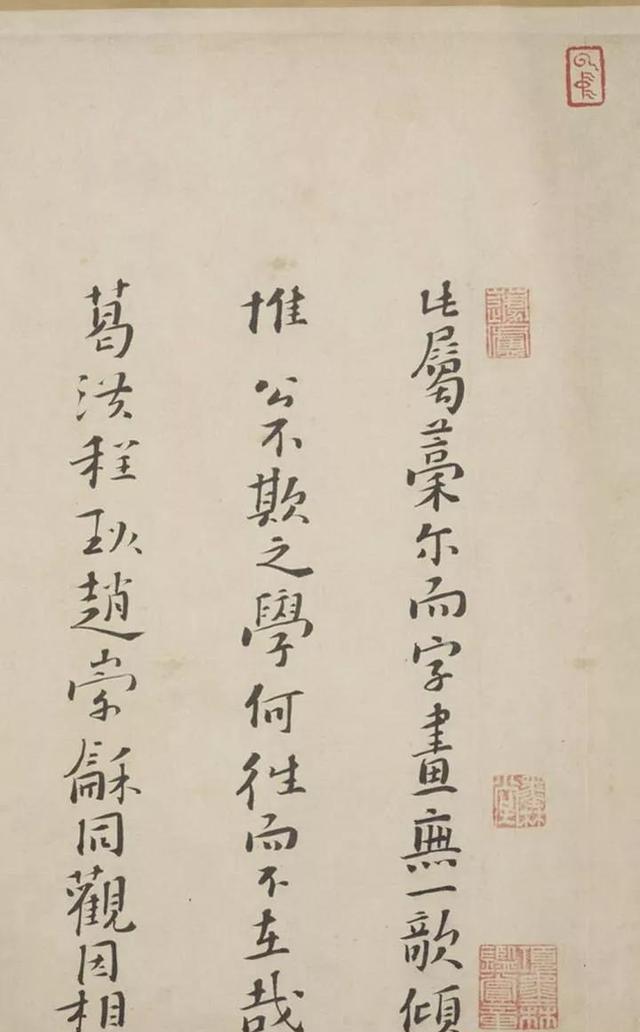 此屬藳尔而字畫無一欹傾
惟公不欺之學何往而不在哉
葛洪程珌趙崇龢同觀因相